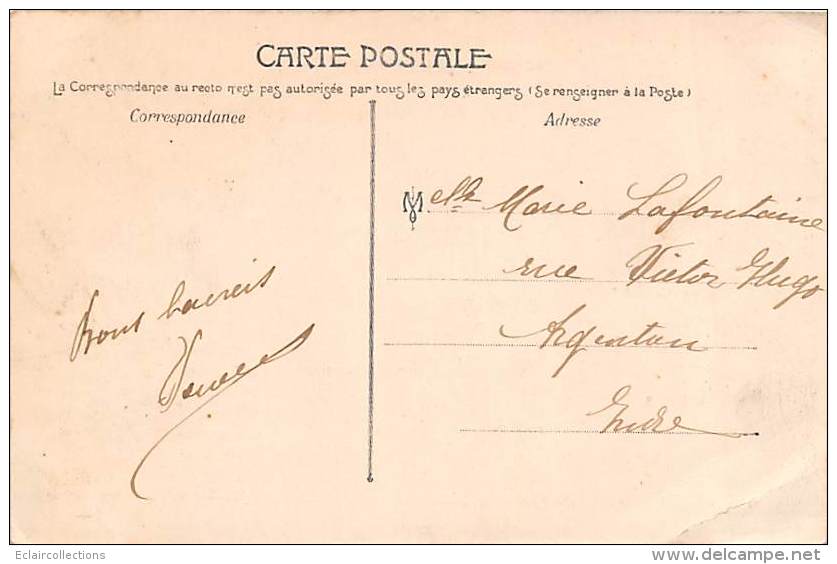 CARTE POSTALE
La Correspondance au recto n'est pas autorisée par tous les pays étrangers (Se renseigner à la Poste)
Correspondance
Adresse
Melle Marie Lafontaine
rue Victor Hugo
Argenton
Indre
Bons baisers
Eclaircollections
www.delcampe.net